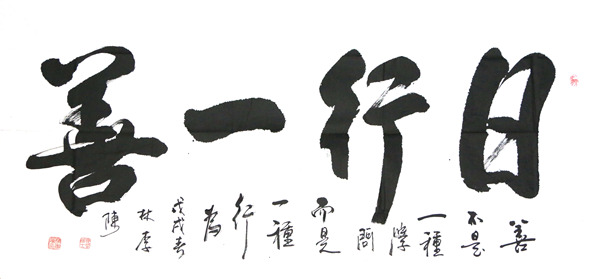 日行一善
善不是一种学问而是一種行為
戊戌春
林厚
陳